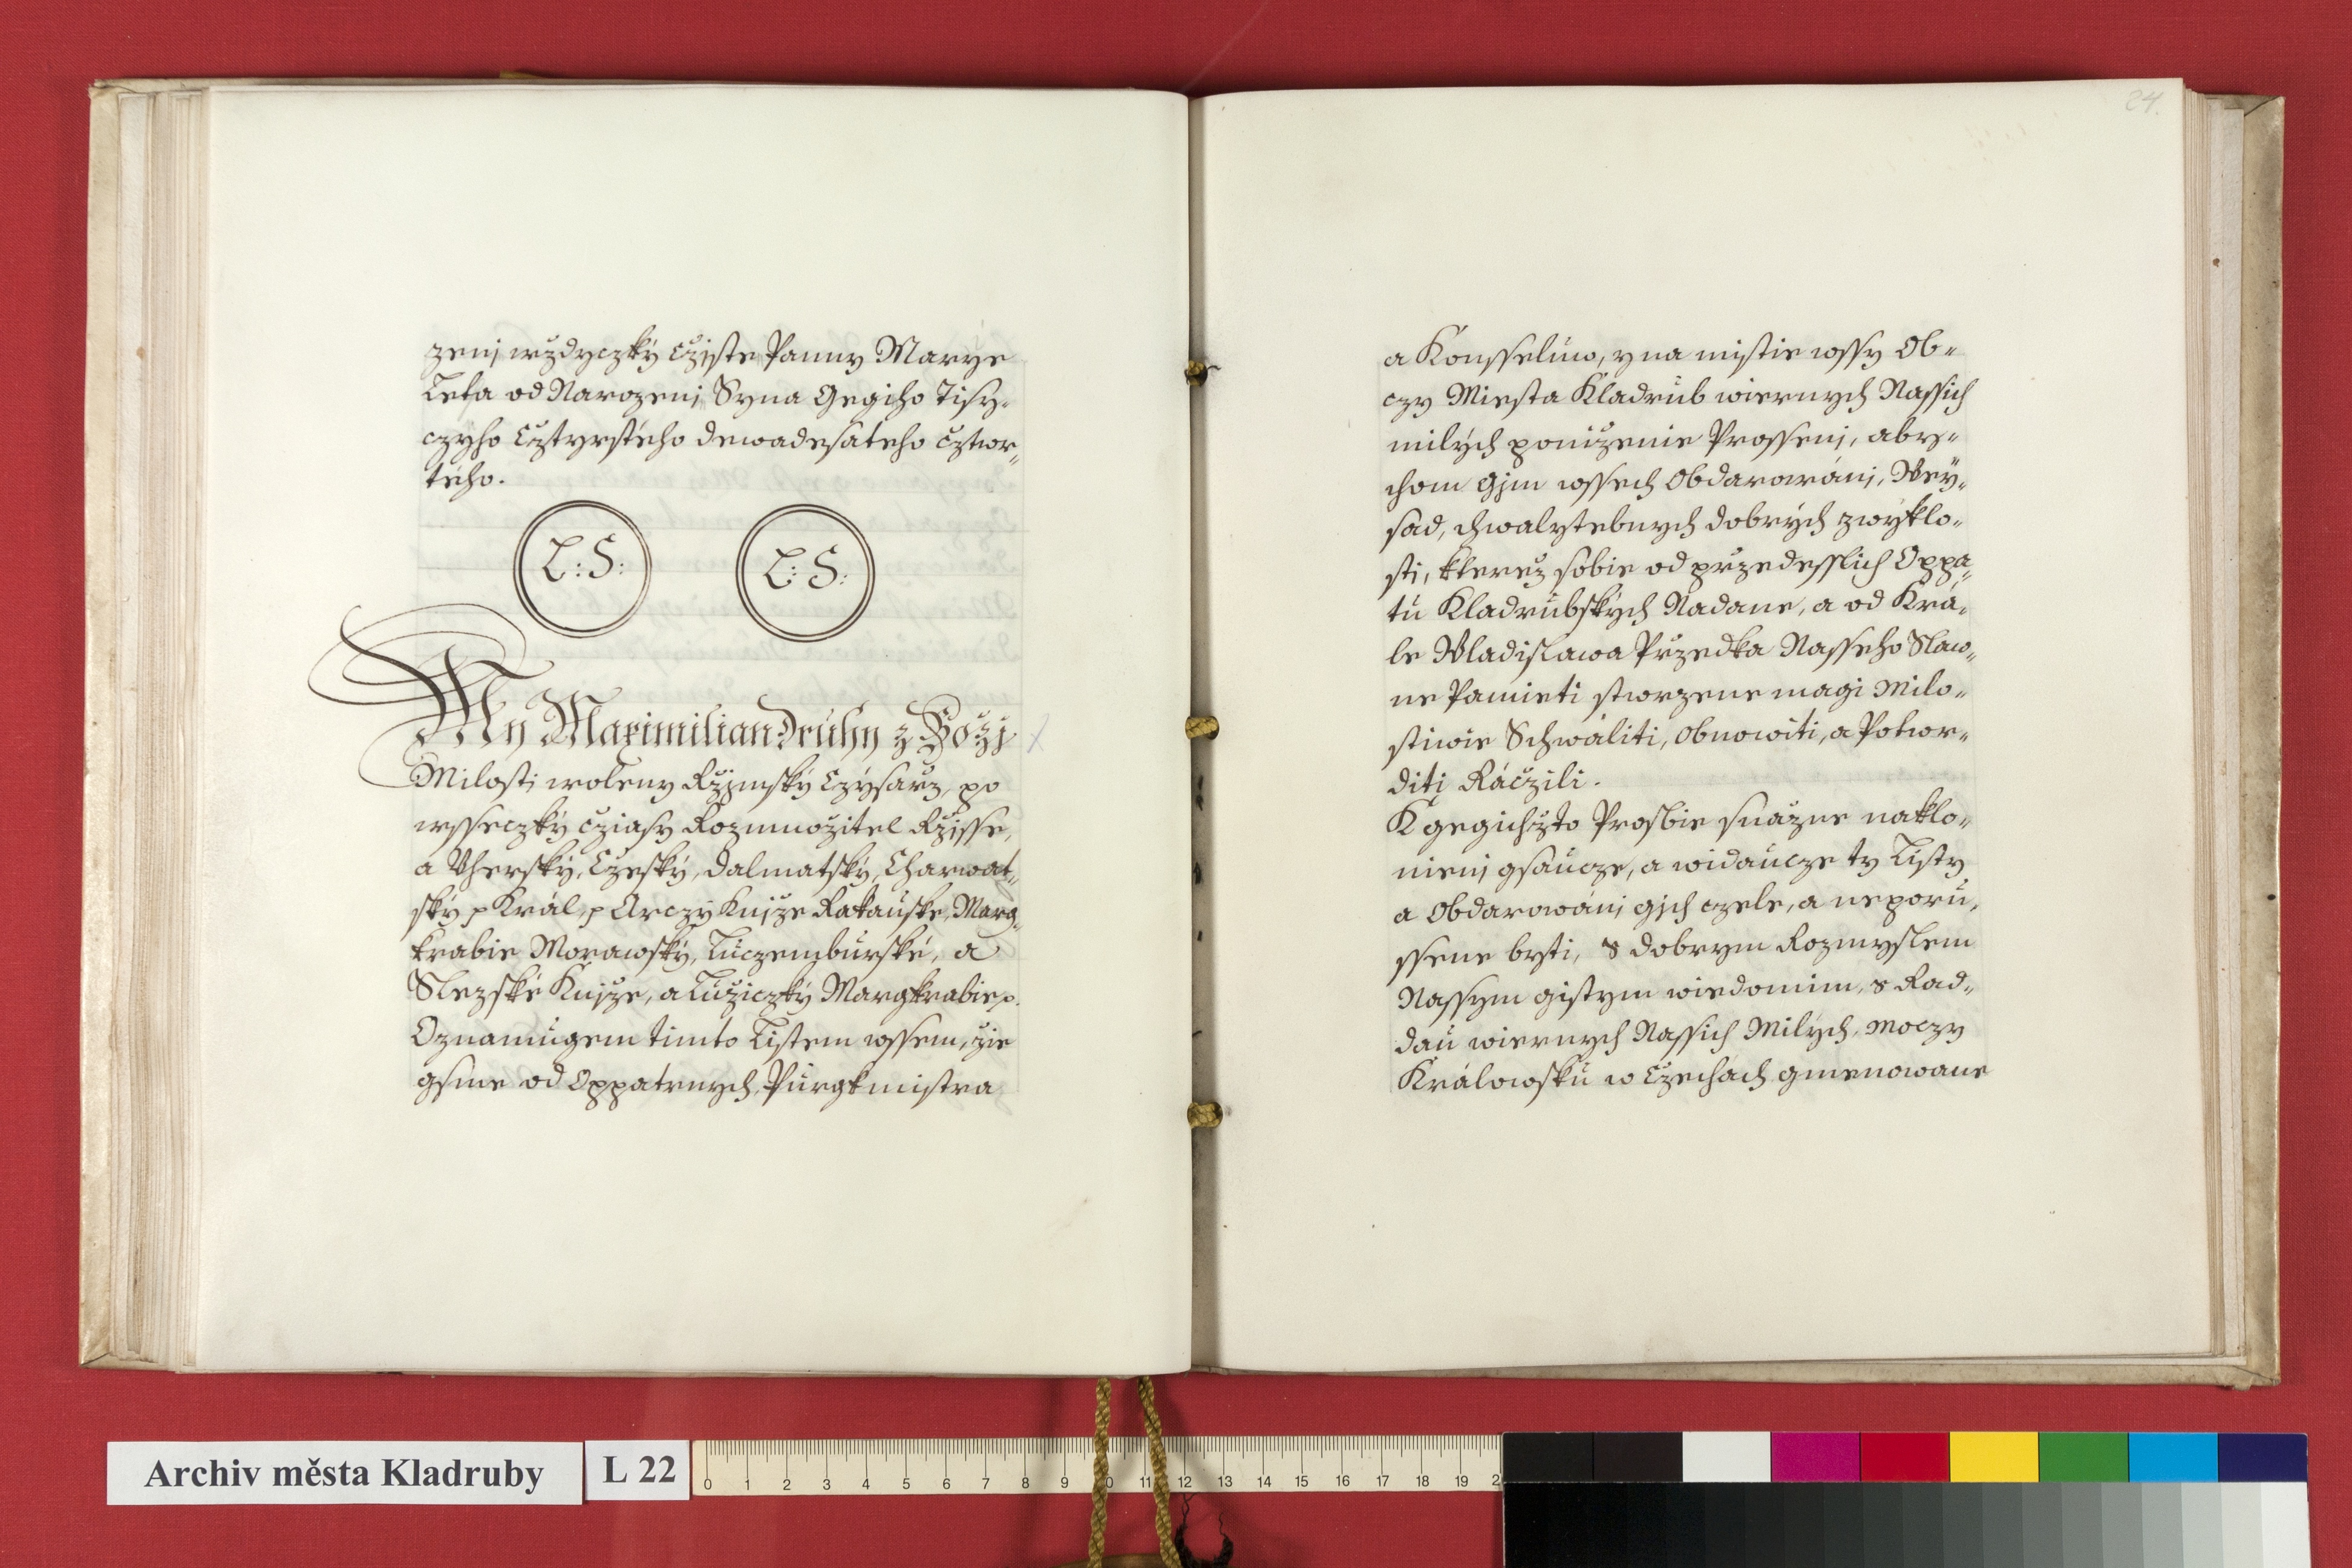 zenj wždyczky Cžjste Panny Marye
Leta od Narozenj Syna Gegiho Tisy-
czyho Cžtyrstého dewadesateho Cžtwr-
tého.
L: S:
L: S:
My Maximilian Druhy z Božj
Milosti woleny Ržjmský Czýsarž, po
wsseczký Cžiasy Rozmnožitel Ržisse,
a Vherský, Cžeský, Dalmatský, Charwat-
ský p Král, p Arczy Knjže Rakauske, Marg-
krabie Morawský, Luczemburské, a
Slezské Knjže, a Lužiczký Margkrabie p.
Oznamugem timto Listem wssem, žie
gsme od Oppatrnych, Purgkmistra
24.
a Konsseluw, y na mistie wssy Ob-
czy Miesta Kladrub wiernych Nassich
milých poniženie Prossenj, aby-
chom Gjm wssech Obdarowánj, Wey-
sad, chwalytebnych dobrých zwyklo-
sti, kterež sobie od pržedesslich Oppa-
tu Kladrubských Nadane, a od Krá-
le Wladislawa Pržedka Nasseho Slaw-
ne Pamieti stwrzene magi Milo-
stiwie Schwáliti, Obnowiti, a Potwr-
diti Ráčzili.
K gegichžto Prosbie snažne naklo-
nienj gsaucze, a widaucze ty Listy
a Obdarowánj gjch czele, a neporu-
ssene byti, S dobrym Rozmyslem
Nassym gistym wiedomim, s Rad-
dau wiernych Nassich Milých, Moczy
Královsku w Cžechách gmenowane
Archiv města Kladruby
L 22
0 1 2 3 4 5 6 7 8 9 10 11 12 13 14 15 16 17 18 19 2